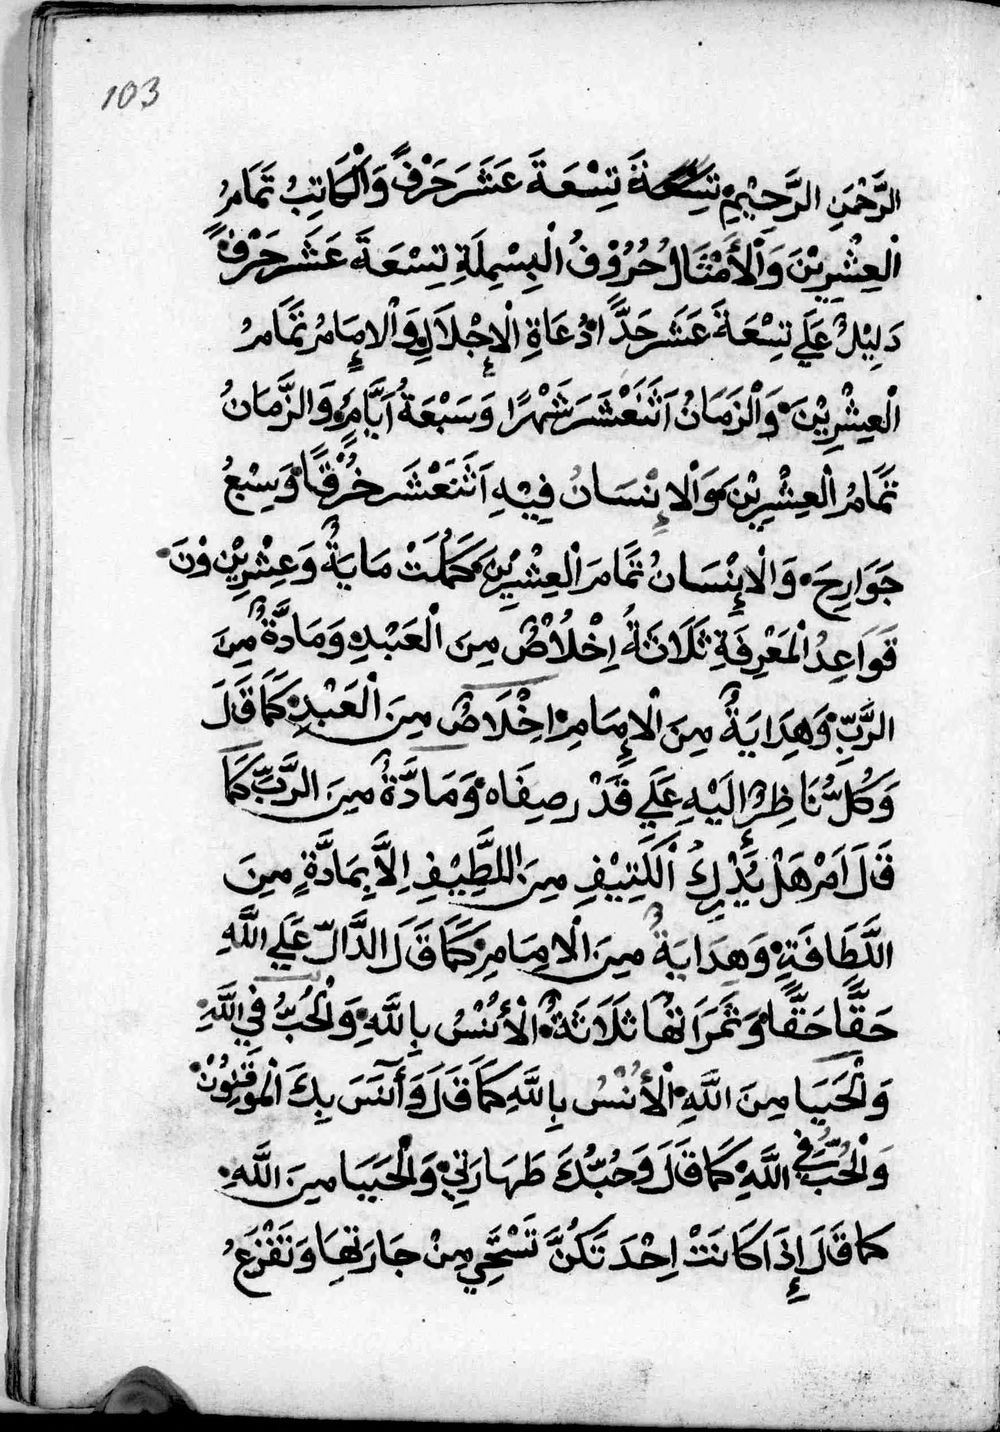 103
الرَّحْمٰنِ الرَّحِيْمِ تِسْعَةَ عَشَرَ حَرْفً وَالْكَاتِبُ تَمَامُ
الْعِشْرِيْنَ وَالْأَمْثَالُ حُرُوْفُ الْبِسْمِلَةِ تِسْعَةَ عَشَرَ حَرْفً
دَلِيْلٌ عَلَي تِسْعَةَ عَشَرَ حَدًّا دُعَاةِ الْإِجْلَالِ وَالْإِمَامُ تَمَامُ
الْعِشْرِيْنَ وَالْزَمَانُ اَثْنَعْشَرَ شَهْرًا وَسَبْعَةُ اَيَّامٍ وَالزَّمَانُ
تَمَامُ الْعِشْرِيْنَ وَالْإِنْسَانُ فِيْهِ اَثْنَعْشَر خُرْقًا وَسِبْعُ
جَوَارِحَ وَالْإِنْسَانُ تَمَامَ الْعِشْرِيْنَ كَمُلَتْ مَايَةٌ وَعِشْرِيْنَ وْنَ
قَوَاعِدُ الْمَعْرِفَةِ ثَلَاثَةُ اِخْلَاصٌ مِنَ الْعَبْدِ وَمَادَّةٌ مِنَ
الرَّبِّ وَهِدَايَةٌ مِنَ الْإِمَامِ اِخْلَاصٌ مِنَ الْعَبْدِ كَمَا قَلَ
وَكُلٌّ نَاظِرٌ إِلَيْهِ عَلَي قَدْرِ صِفَاه وَمَادَّةٌ مِنَ الرَّبِّ كَمَا
قَلَ اَمْ هَلْ يُدْرِكُ الْكَثِيْفِ مِنَ اللَّطِيْفِ اِلَّا بِمَادَّةٍ مِنَ
اللَّطَافَةِ وَهِدَايَةٌ مِنَ الْاِمَامِ كَمَا قَلَ الدَّالّ عَلَي اللَّهِ
حَقًّا حَقًّا وَثَمَرَاتُهَا ثَلَاثَةٌ الْأُنْسُ بِاللَّهِ وَالْحُبُّ فِي اللَّهِ
وَالْحَيَا مِنَ اللَّهِ الْأُنْسُ بِاللَّهِ كَمَا قَلَ وَآنَسَ بِكَ الْمُوقَنُوْنَ
وَالْحُبُّ فِي اللَّهِ كَمَا قَلَ وَحُبُّكَ طَهَارَتِي وَالْحَيَا مِنَ اللَّهِ
كما قَلَ إِذَا كَانَتْ اِحْدَ تَكُنَّ تَسْتَحِي مِنْ جَارَتِهَا وَتَفْزَعُ